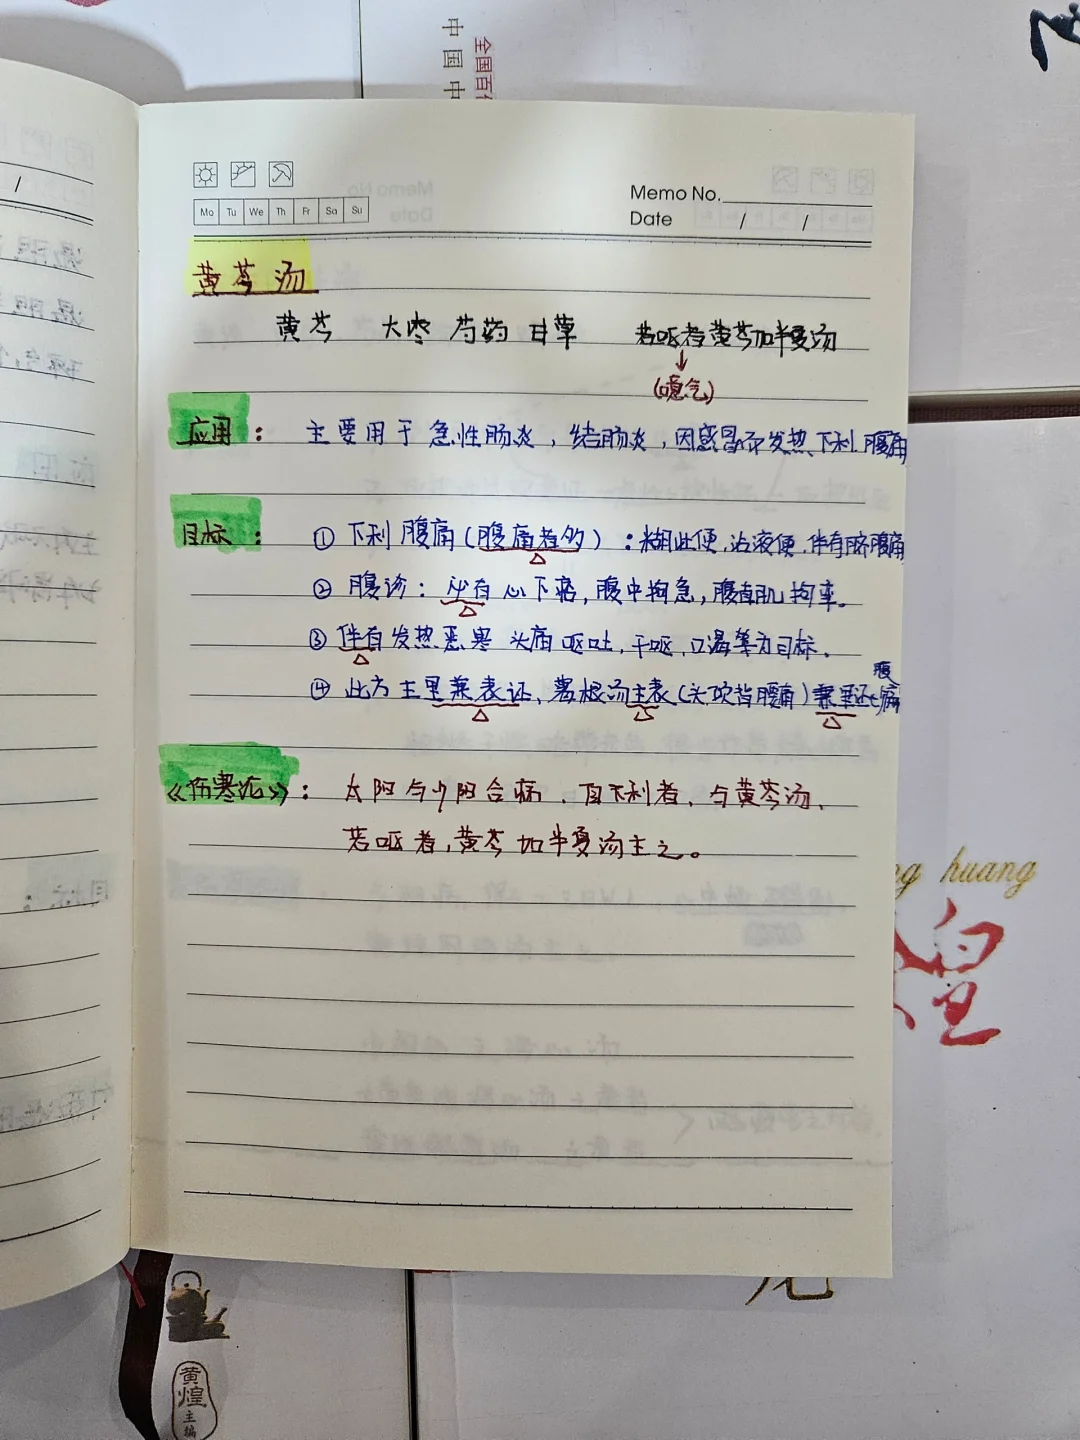 中国中
全国百
Memo No.
Date / /
Mo Tu We Th Fr Sa Su
黄芩汤
黄芩 大枣 芍药 甘草 若呕者黄芩加半夏汤
(噫气)
应用： 主要用于急性肠炎，结肠炎，因感冒而发热、下利、腹痛
目标： ① 下利腹痛（腹痛者多）：糊状便、沾液便、伴有脐腹痛
② 腹诊：必有心下痞，腹中拘急，腹直肌拘挛。
③ 伴有发热恶寒 头痛 呕吐，干呕，口渴等为目标。
④ 此为主里兼表证、葛根汤主表（头项背腰痛）兼里还七腹痛
《伤寒论》： 太阳与少阳合病、自下利者、与黄芩汤、
若呕者，黄芩加半夏汤主之。
huang
煌
黄煌
主编